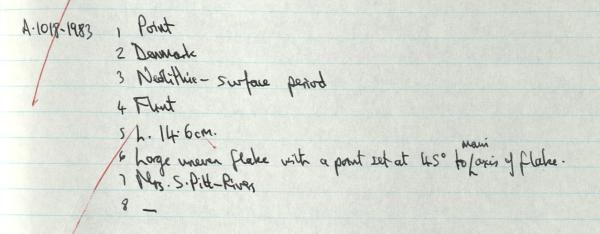 A.1018-1983 1 Point
2 Denmark
3 Neolithic - surface period
4 Flint
5 L. 14.6cm.
6 Large uneven flake with a point set at 45° to main axis of flake.
7 Mrs. S. Pitt-Rivers
8 —